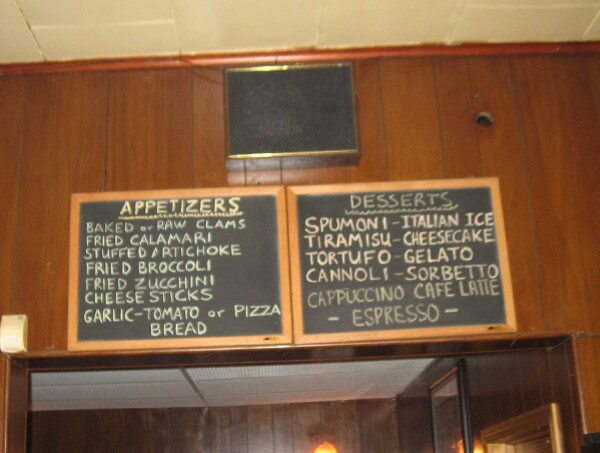 APPETIZERS
BAKED or RAW CLAMS
FRIED CALAMARI
STUFFED ARTICHOKE
FRIED BROCCOLI
FRIED ZUCCHINI
CHEESE STICKS
GARLIC-TOMATO or PIZZA
BREAD
DESSERTS
SPUMONI-ITALIAN ICE
TIRAMISU-CHEESECAKE
TORTUFO-GELATO
CANNOLI-SORBETTO
CAPPUCCINO CAFE LATTE
- ESPRESSO -